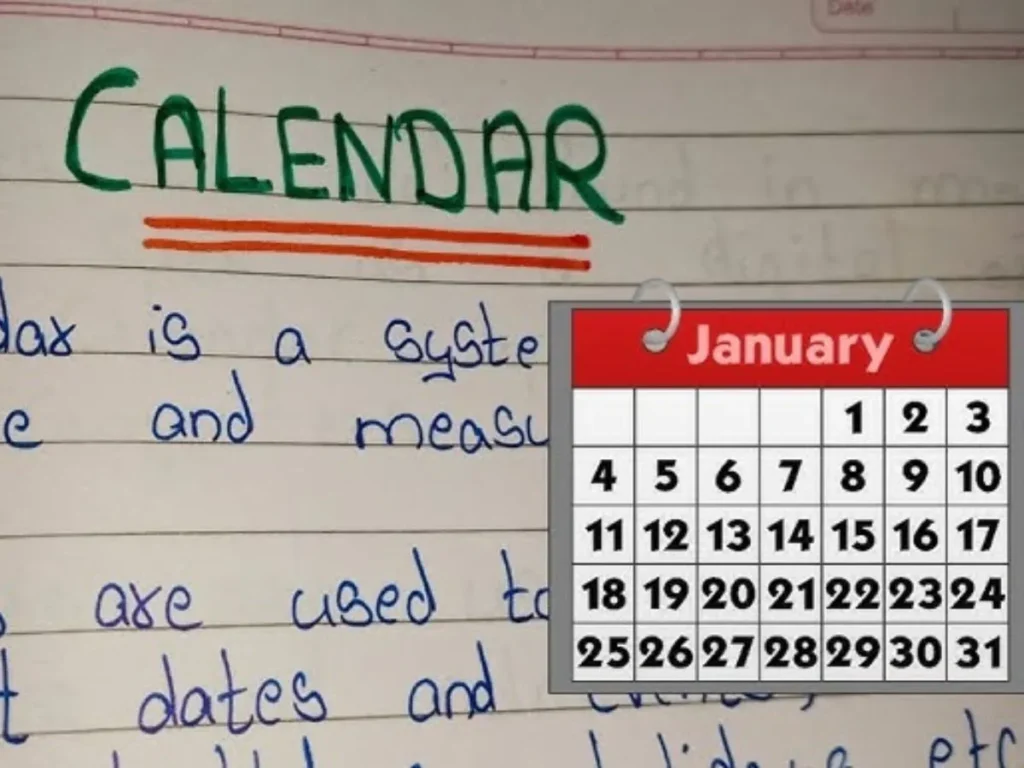 Date
CALENDAR
is a
and
are used
dates and
etc
January
1 2 3
4 5 6 7 8 9 10
11 12 13 14 15 16 17
18 19 20 21 22 23 24
25 26 27 28 29 30 31